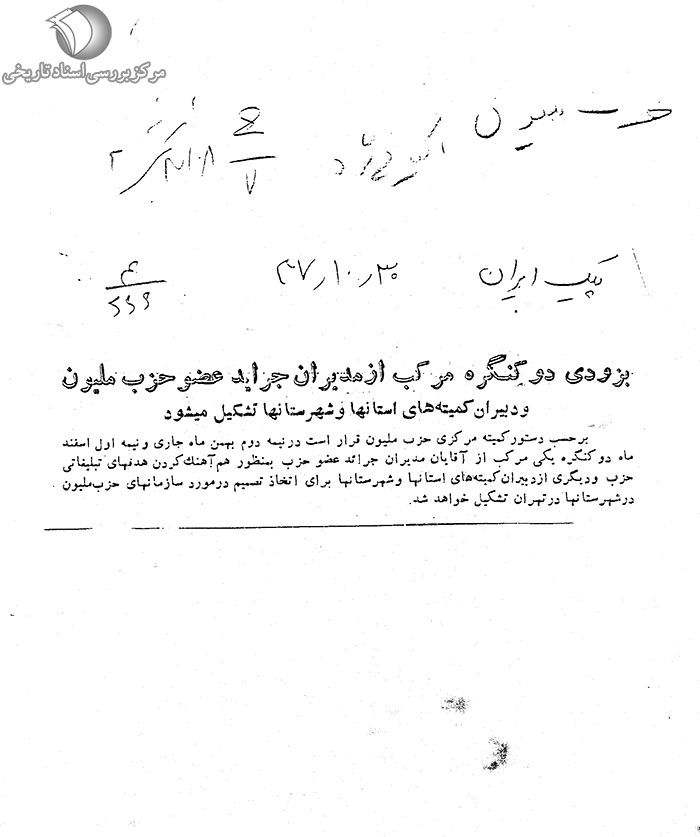 مرکز بررسی اسناد تاریخی
حزب ملیون
پیک ایران ۳۷٫۱۰٫۳۰
بزودی دو کنگره مرکب از مدیران جراید عضو حزب ملیون
ودبیران کمیته‌های استانها وشهرستانها تشکیل میشود
برحسب دستور کمیته مرکزی حزب ملیون قرار است درنیمه دوم بهمن ماه جاری ونیمه اول اسفند
ماه دو کنگره یکی مرکب از آقایان مدیران جرائد عضو حزب بمنظور هم‌آهنك کردن هدفهای تبلیغاتی
حزب ودیگری ازدبیران کمیته‌های استانها وشهرستانها برای اتخاذ تصمیم درمورد سازمانهای حزب‌ملیون
درشهرستانها درتهران تشکیل خواهد شد.